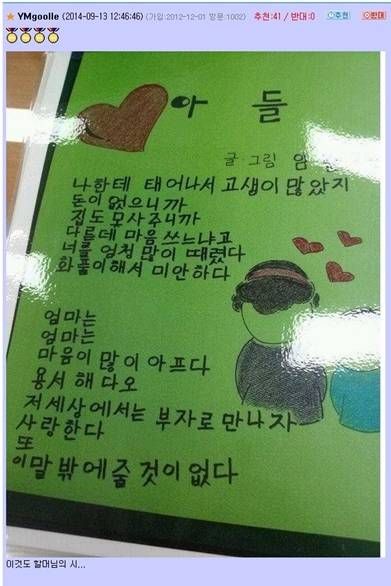 ★ YMgoolle (2014-09-13 12:46:46) (가입:2012-12-01 방문:1002) 추천:41 / 반대:0 추천 반대
아들
글 그림 임
나한테 태어나서 고생이 많았지
돈이 없으니까
집도 못사주니까
다른데 마음쓰느냐고
너를 엄청 많이 때렸다
화풀이해서 미안하다
엄마는
엄마는
마음이 많이 아프다
용서해다오
저세상에서는 부자로 만나자
사랑한다
또
이말 밖에 줄 것이 없다
이것도 할머님의 시...